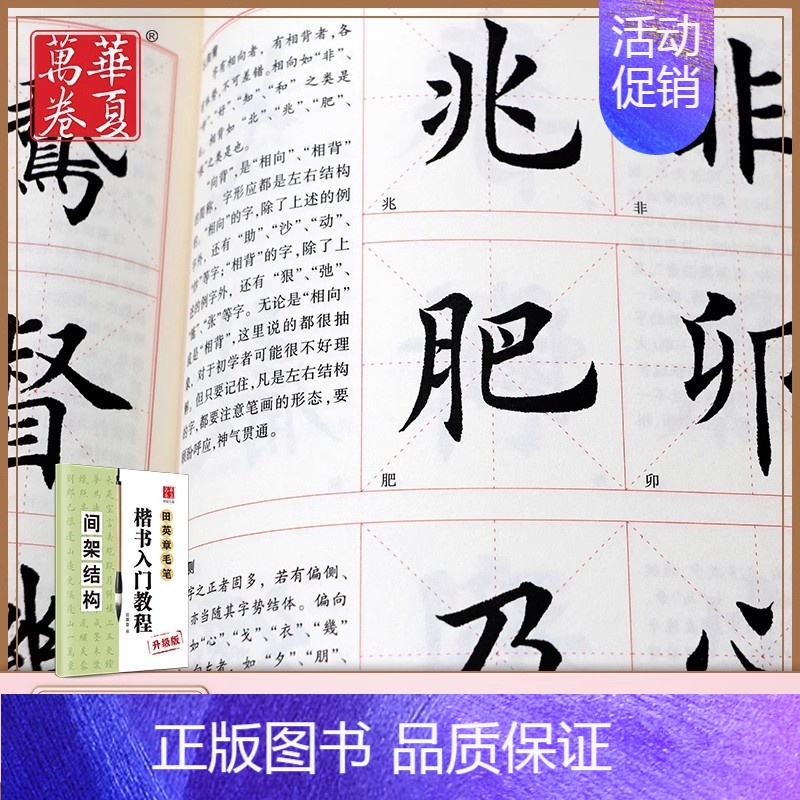 華夏
萬卷
®
活动
促销
齐有相向者，有相背者，各
不可差错。相向如“非”、
“好”、“知”、“和”之类是
相背如“北”、“兆”、“肥”、
之类是也。
“向背”，是“相向”、“相背”
的简称，字形应都是左右结构
“相向”的字，除了上述的例
字外，还有“助”、“沙”、“动”、
等字；“相背”的字，除了上
述的例字外，还有“狠”、“弛”、
“张”等字。无论是“相向”
或是“相背”，这里说的都很抽
象，对于初学者可能很不好理
解。但只要记住，凡是左右结构
的字，都要注意笔画的形态，要
顾盼呼应，神气贯通。
则
字之正者固多，若有偏侧、
亦当随其字势结体。偏向
如“心”、“戈”、“衣”、“幾”
向左者，如“夕”、“朋”、
驚
督
兆
兆
非
非
肥
肥
卯
卯
乃
心
间架结构
田英章毛笔
楷书入门教程
升级版
正版图书 品质保证